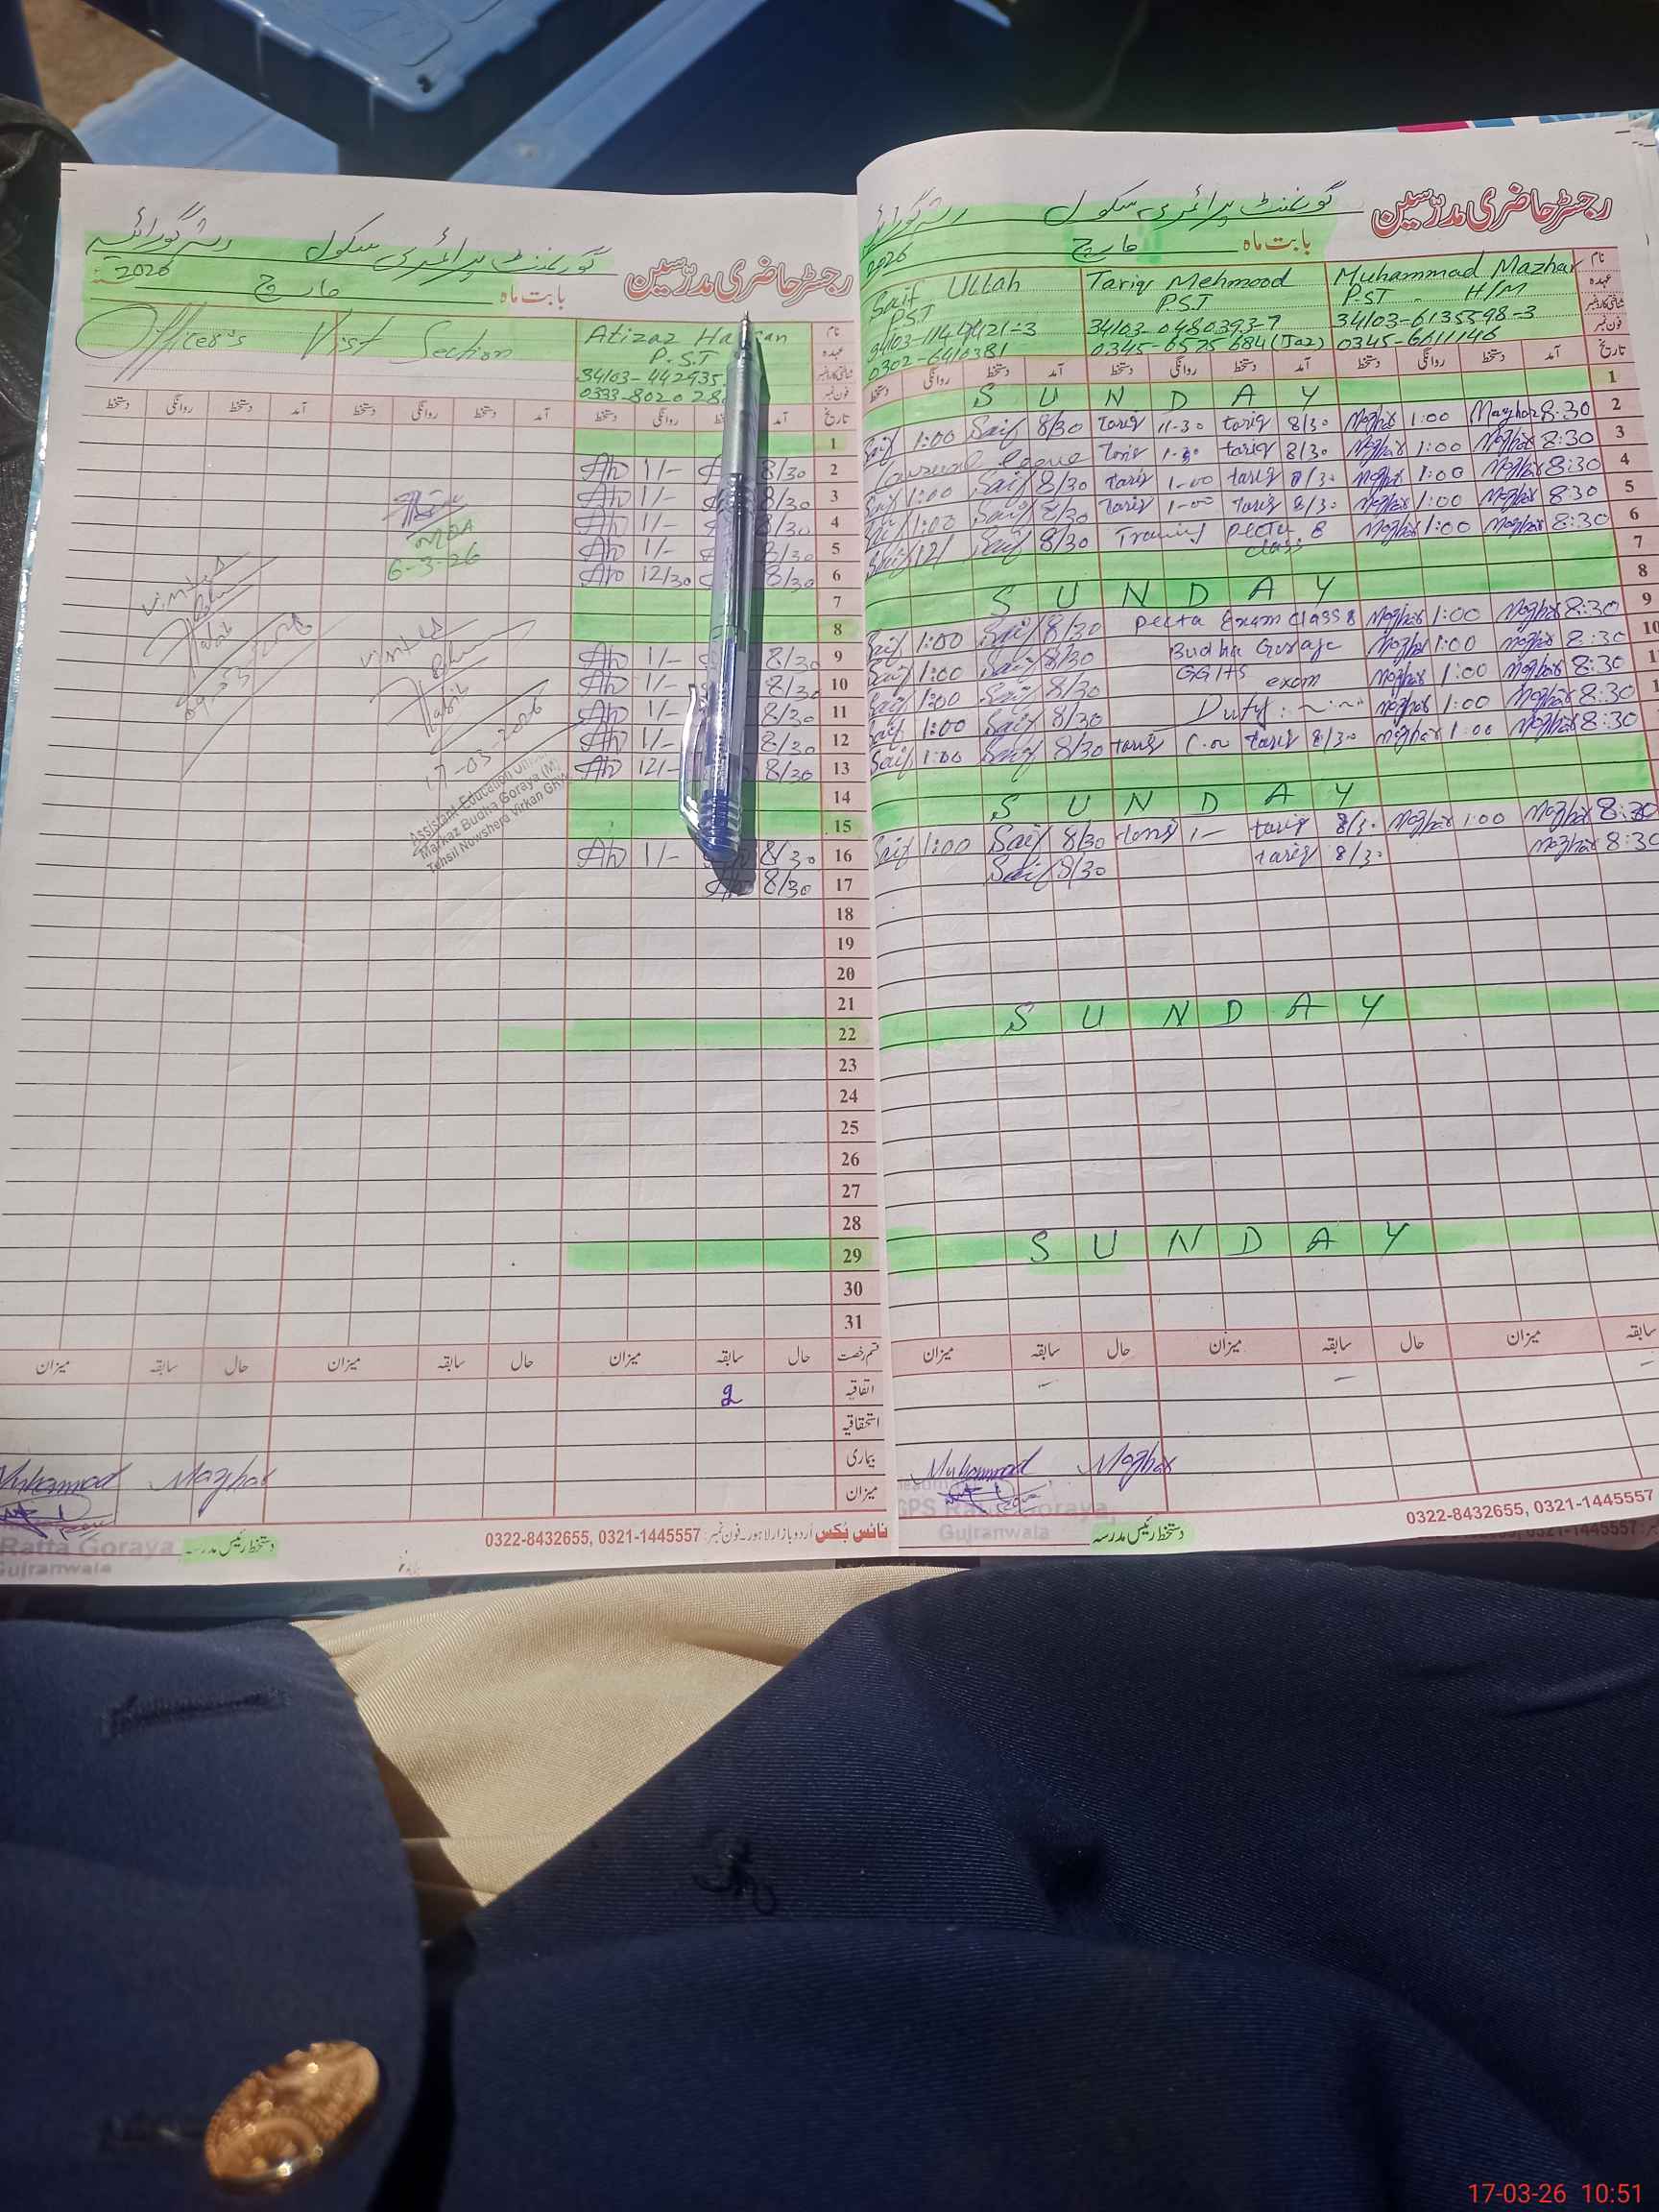 رجسٹر حاضری مدرّسین گورنمنٹ پرائمری سکول
بابت ماہ مارچ 2026
نام Muhammad Mazhar Tariq Mehmood Saif Ullah
عہدہ PST H/M P.S.T PST
شناختی کارڈ نمبر 34103-6135598-3 34103-0480393-7
فون نمبر 0345-6611146 0345-6525684 (Jaz) 0302-6410381
تاریخ آمد دستخط روانگی دستخط آمد دستخط روانگی دستخط آمد دستخط روانگی دستخط
1 SUNDAY
2 8:30 Mazhar 1:00 Mazhar 8/30 tariq 11-30 tariq 8/30 Saif 1:00 Saif
3 8:30 Mazhar 1:00 Mazhar 8/30 tariq 1-30 tariq
4 8:30 Mazhar 1:00 Mazhar 8/30 tariq 1-00 tariq 8/30 Saif 1:00 Saif
5 8:30 Mazhar 1:00 Mazhar 8/30 tariq 1-00 tariq 8/30 Saif 1:00 Saif
6 8:30 Mazhar 1:00 Mazhar Training Pecta class 8 8/30 Saif 12/ Saif
7
8 SUNDAY
9 8:30 Mazhar 1:00 Mazhar Pecta Exam class 8 8/30 Saif 1:00 Saif
10 8:30 Mazhar 1:00 Mazhar Budha Goraya 8/30 Saif 1:00 Saif
8:30 Mazhar 1:00 Mazhar GGHS exam 8/30 Saif 1:00 Saif
8:30 Mazhar 1:00 Mazhar Duty 8/30 Saif 1:00 Saif
8:30 Mazhar 1:00 Mazhar 8/30 tariq 1:00 tariq 8/30 Saif 1:00 Saif
SUNDAY
8:30 Mazhar 1:00 Mazhar 8/30 tariq 1- tariq 8/30 Saif 1:00 Saif
8:30 Mazhar 8/30 tariq 8/30 Saif
SUNDAY
SUNDAY
سابقہ میزان حال سابقہ میزان حال سابقہ میزان
Muhammad Mazhar
GPS Ratta Goraya,
Gujranwala
دستخط رئیس مدرسہ
0322-8432655, 0321-1445557
رجسٹر حاضری مدرّسین گورنمنٹ پرائمری سکول
بابت ماہ مارچ 2026
نام Atizaz Officer's Visit Section
عہدہ P.ST
شناختی کارڈ نمبر 34103-442935
فون نمبر 0333-8020
تاریخ آمد روانگی دستخط آمد دستخط روانگی دستخط آمد دستخط روانگی دستخط
1
2 8/30 1/-
3 8/30 1/-
4 8/30 1/-
5 8/30 1/-
6 8/30 12/30
7
8
9 8/30 1/-
10 8/30 1/-
11 8/30 1/-
12 8/30 1/-
13 8/30 12/-
14
15
16 8/30 1/-
17 8/30
18
19
20
21
22
23
24
25
26
27
28
29
30
31
6-3-26
visited
visited
17-03-2026
Assistant Education
Markaz Budha Goraya (M)
Tehsil Nowshera Virkan
قسم رخصت حال سابقہ میزان حال سابقہ میزان حال سابقہ میزان
اتفاقیہ 2
استحقاقیہ
بیماری
میزان
Muhammad Mazhar
Ratta Goraya
Gujranwala
دستخط رئیس مدرسہ
اردو بازار لاہور۔ فون نمبر: 0322-8432655, 0321-1445557
17-03-26 10:51